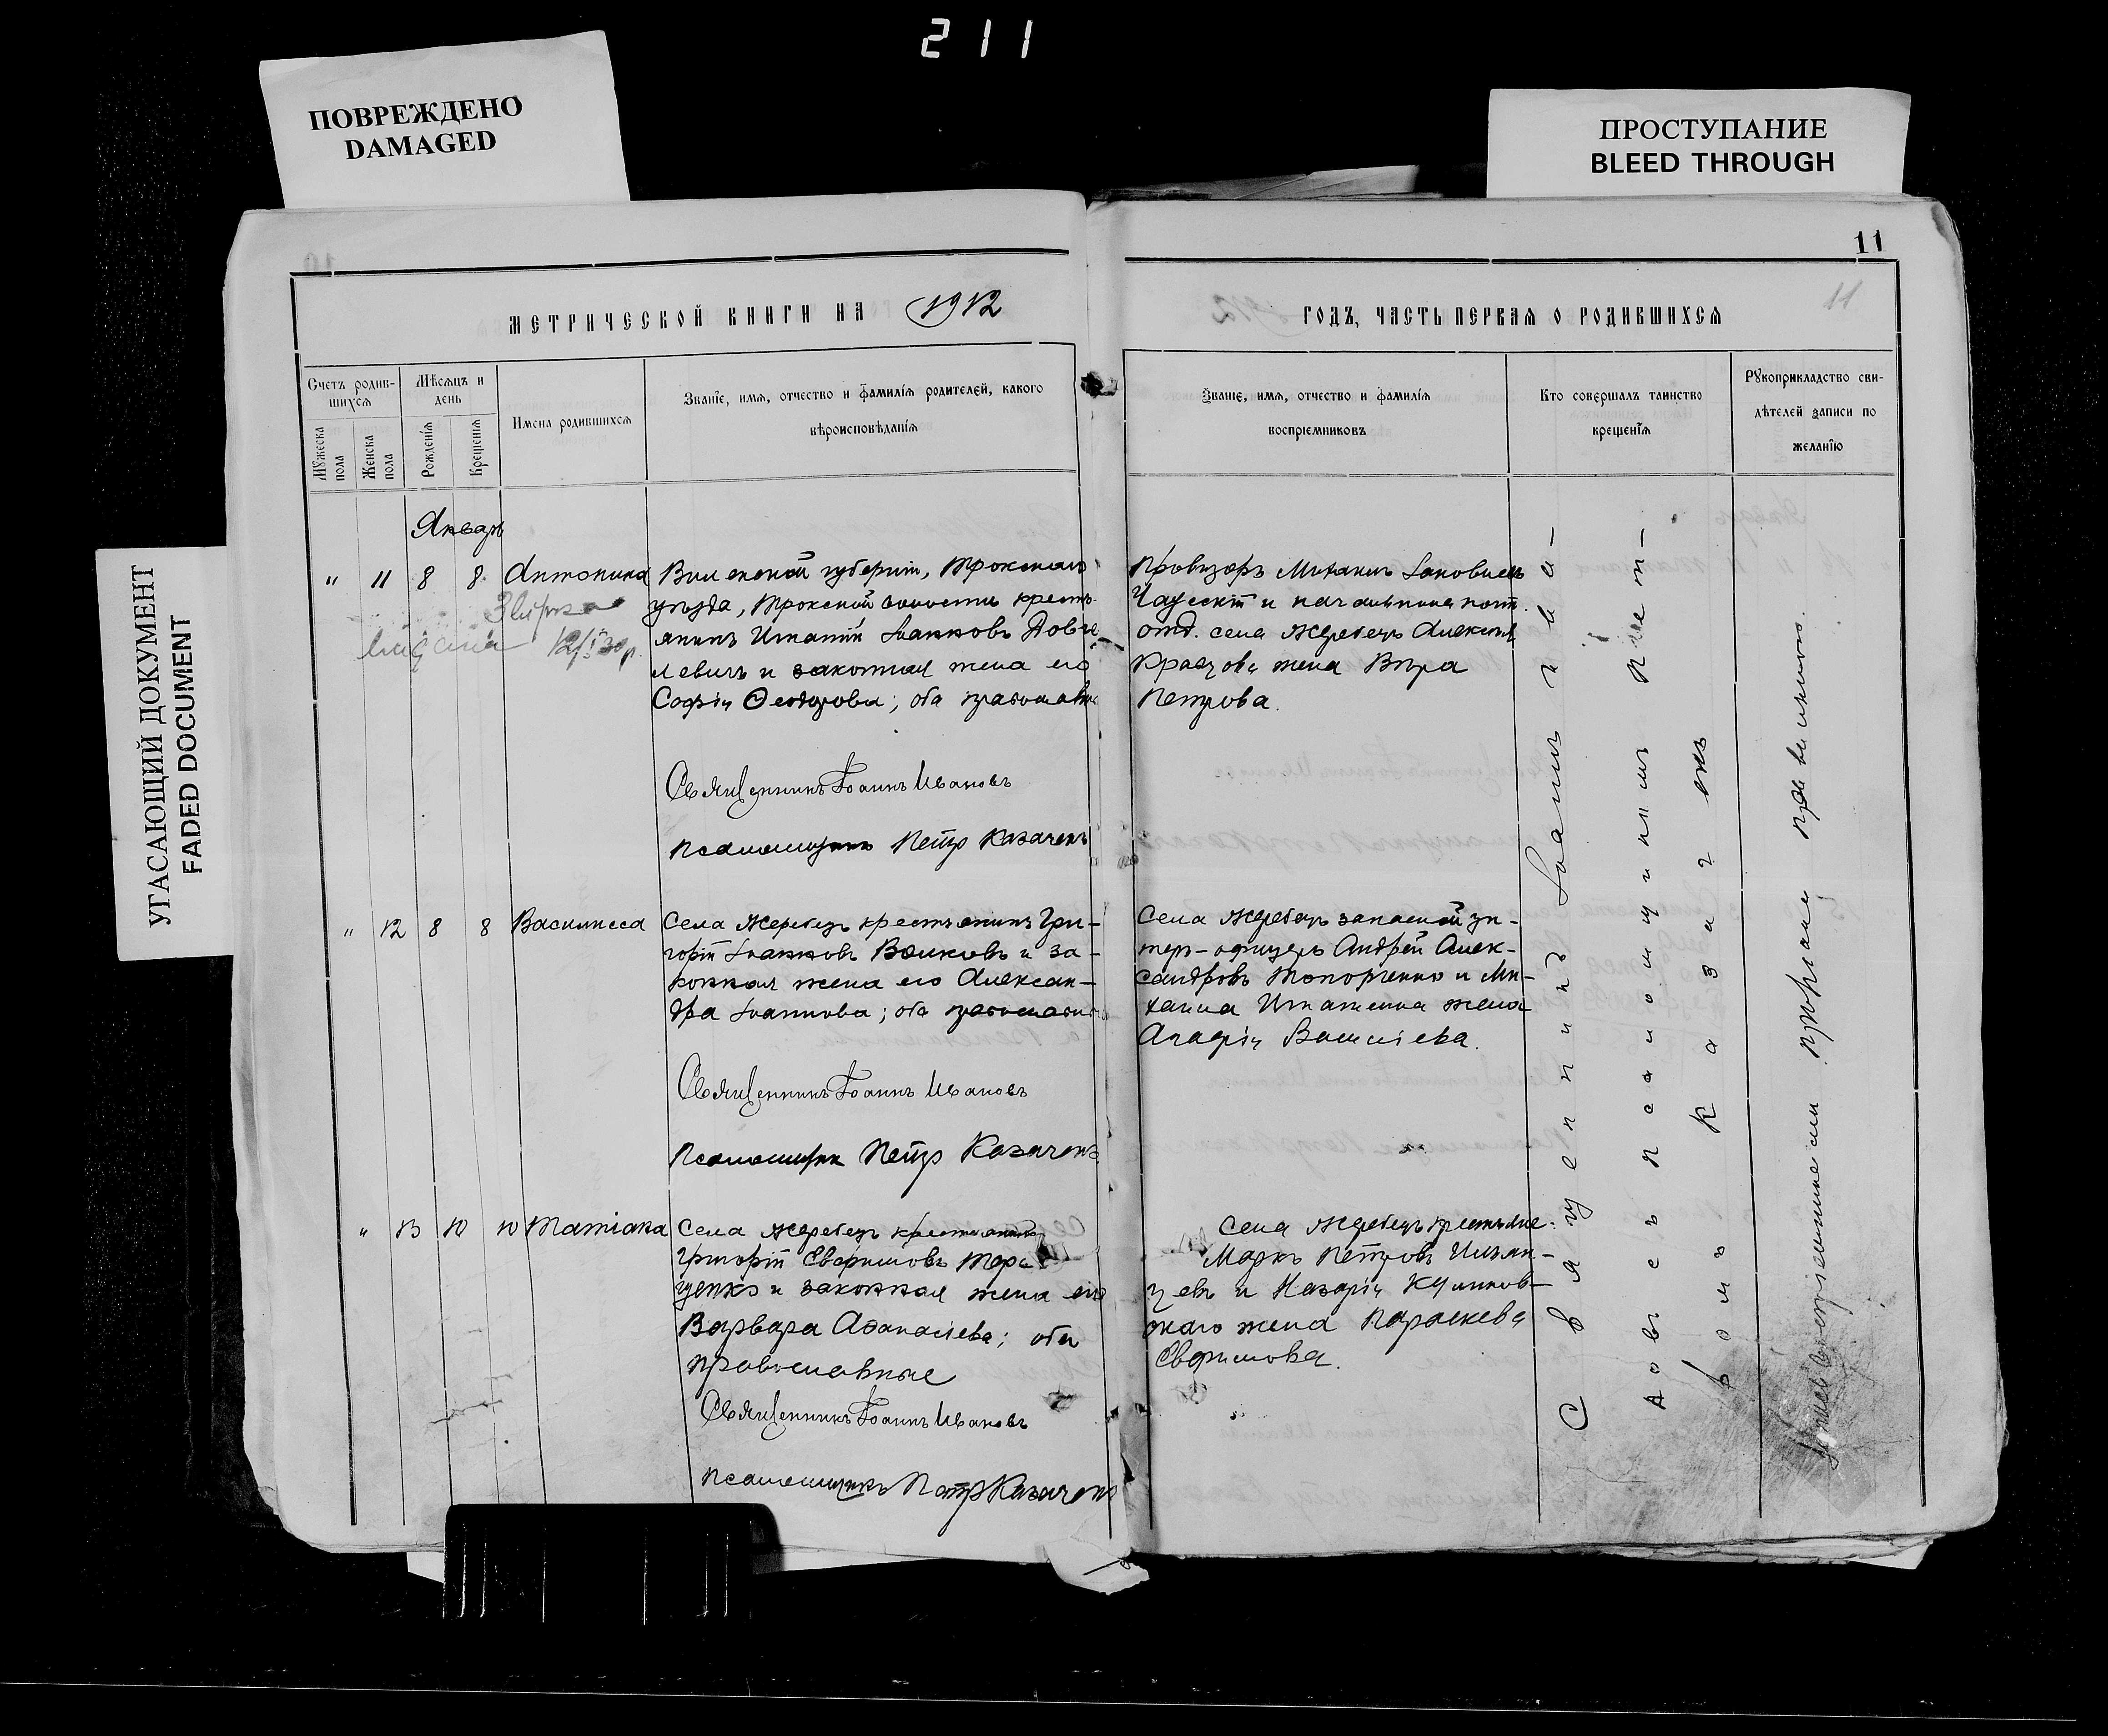 211
ПОВРЕЖДЕНО
DAMAGED
ПРОСТУПАНИЕ
BLEED THROUGH
УГАСАЮЩИЙ ДОКУМЕНТ
FADED DOCUMENT
11
11
МЕТРИЧЕСКОЙ КНИГИ НА 1912
ГОДЪ, ЧАСТЬ ПЕРВАЯ О РОДИВШИХСЯ
Счетъ родив-
шихся
Мужеска пола
Женска пола
Мѣсяцъ и
день
Рожденія
Крещенія
Имена родившихся
Званіе, имя, отчество и фамилія родителей, какого
вѣроисповѣданія
Званіе, имя, отчество и фамилія
воспріемниковъ
Кто совершалъ таинство
крещенія
Рукоприкладство сви-
дѣтелей записи по
желанію
Январь
" 11 8 8 Антонина
12/I 30 р.
Виленской губерніи, Трокскаго
уѣзда, Трокской волости кресть-
янинъ Игнатій Іоанновъ
и законная жена его
Софія Ѳеодорова; оба православн
Священникъ Іоаннъ Ивановъ
Псаломщикъ Петр Казаченъ
Провизоръ Михаилъ
и начальника почт.
отд. села Жеребецъ Алексѣя
жена Вѣра
Петрова.
" 12 8 8 Василисса
Села Жеребецъ крестьянинъ Гри-
горій Іоанновъ Волковъ и за-
конная жена его Алексан-
дра Іоаннова; оба православн
Священникъ Іоаннъ Ивановъ
Псаломщик Петр Казаченъ
Села Жеребецъ запасной ун-
теръ-офицеръ Андрей Алек-
сандровъ Топорченко и Ми-
хаила Игнатенка жена
Агафія Васильева.
" 13 10 10 Татіана
Села Жеребецъ крестьянинъ
Григорій Евфимовъ Тере
щенко и законная жена его
Варвара Аѳанасіева; оба
православные
Священникъ Іоаннъ Ивановъ
Псаломщикъ Петр Казаченъ
Села Жеребецъ крестьяне:
Маркъ Петровъ
и Назарія Куликов-
скаго жена Параскева
Евфимова.
Священникъ Іоаннъ Ива-
новъ съ псаломщикомъ Пет-
ромъ Казаченъ